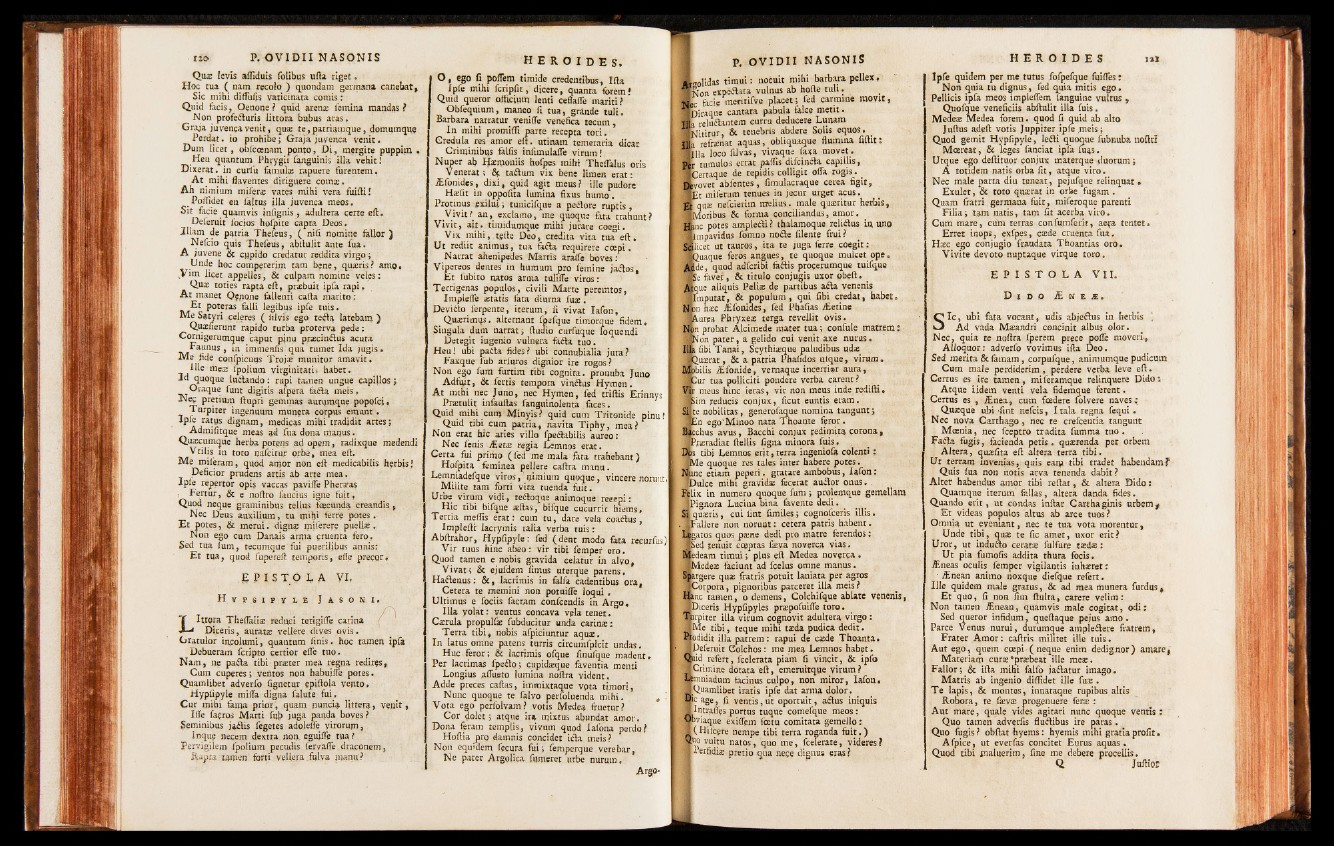 120 P. OVIDII NASONIS
Quæ levis assiduis solibus usta riget.
Hoc tua (nam recolo) quondam germana canebat,
Sic mihi diffusis vaticinata comis:
Quid facis, Oenone? quid arenæ semina mandas?
Non profecturis littora bubus aras.
Graja juvenca venit, quæ te, patriamque, domumque
Perdat. io prohibe; Graja juvenca venit.
Dum licet, obscœnam ponto, Di, mergite puppim.
Heu quantum Phrygii sanguinis illa vehit!
Dixerat. in cursu famulæ rapuere furentem.
At mihi flaventes diriguere comæ.
Ah nimium miseræ vates mihi vera fuisti!
Possidet en saltus illa juvenca meos.
Sit facie quamvis insignis, adultera certe est.
Deseruit socios hospite capta Deos.
Illam de patria Theseus, (nisi nomine fallor)
Nescio quis Theseus, abstulit ante sua.
A juvene & cupido credatur reddita virgo;
Unde hoc compererim tam bene, quæris? amo.
Vim licet appelles, & culpam nomine veles:
Quæ toties rapta est, præbuit ipsa rapi.
At manet Oenone fallenti casta marito:
Et poteras falli legibus ipse tuis.
Me Satyri celeres (silvis ego tecta latebam)
Quæsierunt rapido turba proterva pede:
Cornigerumque caput pinu præcinctus acuta
Faunus, in immensis qua tumet Ida jugis.
Me fide conspicuus Trojæ munitor amavit.
Ille meæ spolium virginitatis habet.
Id quoque luctando: rupi tamen ungue capillos;
Oraque sunt digitis aspera facta meis.
Nec pretium stupri gemmas aurumque poposci.
Turpiter ingenuum munera corpus emunt.
Ipse ratus dignam, medicas mihi tradidit artes;
Admisitque meas ad sua dona manus.
Quæcumque herba potens ad opem, radixque medendi
Vtilis in toto nascitur orbe, mea est.
Me miseram, quod amor non est medicabilis herbis!
Deficior prudens artis ab arte mea.
Ipse repertor opis vaccas pavisse Pheræas
Fertur, & e nostro saucius igne fuit,
Quod neque graminibus tellus fœcunda creandis,
Nec Deus auxilium, tu mihi ferre potes.
Et potes, & merui. dignæ miserere puellæ.
Non ego cum Danais arma cruenta fero.
Sed tua sum, tecumque fui puerilibus annis:
Et tua, quod superest temporis, esse precor.
EPISTOLA VI.
HYPSIPYLE JASONI.
LIttora Thessaliæ reduci tetigisse carina
Diceris, auratæ vellere dives ovis.
Gratulor incolumi, quantum sinis. hoc tamen ipsa
Debueram scripto certior esse tuo.
Nam, ne pacta tibi præter mea regna redires,
Cum cuperes; ventos non habuisse potes.
Quamlibet adverso signetur epistola vento.
Hypsipyle missa digna salute fui.
Cur mihi fama prior, quam nuncia littera, venit,
Isse sacros Marti sub juga panda boves?
Seminibus jactis segetes adolesse virorum,
Inque necem dextra non eguisse tua?
Pervigilem spolium pecudis servasse draconem,
Rapta tamen forti vellera fulva manu?
HEROIDES.
O, ego si possem timide credentibus, Ista
Ipse mihi scripsit, dicere, quanta forem!
Quid queror officium lenti cessasse mariti?
Obsequium, maneo si tua, grande tuli.
Barbara narratur venisse venefica tecum,
In mihi promissi parte recepta tori.
Credula res amor est. utinam temeraria dicar
Criminibus falsis insimulasse virum!
Nuper ab Hæmoniis hospes mihi Thessalus oris
Venerat; & tactum vix bene limen erat:
Æsonides, dixi, quid agit meus? ille pudore
Hæsit in opposita lumina fixus humo.
Protinus exilui; tunicisque a pectore ruptis,
Vivit? an, exclamo, me quoque fata trahunt?
Vivit, ait. timidumque mihi jurare coegi.
Vix mihi, teste Deo, credita vita tua est.
Ut rediit animus, tua facta requirere cœpi.
Narrat ahenipedes Martis arasse boves:
Vipereos dentes in humum pro semine jactos,
Et subito natos arma tulisse viros:
Terrigenas populos, civili Marte peremtos,
Implesse ætatis fata diurna suæ.
Devicto serpente, iterum, si vivat Iason,
Quærimus. alternant spesque timorque fidem.
Singula dum narrat; studio cursuque loquendi
Detegit ingenio vulnera facta tuo.
Heu! ubi pacta fides? ubi connubialia jura?
Faxque sub arsuros dignior ire rogos?
Non ego sum furtim tibi cognita. pronuba Juno
Adfuit, & sertis tempora vinctus Hymen.
At mihi nec Juno, nec Hymen, sed tristis Erinnys
Prætulit infaustas sanguinolenta faces.
Quid mihi cum Minyis? quid cum Tritonide pinu?
Quid tibi cum patria, navita Tiphy, mea?
Non erat hic aries villo spectabilis aureo:
Nec senis Æetæ regia Lemnos erat.
Certa fui primo (sed me mala fata trahebant)
Hospita feminea pellere castra manu.
Lemniadesque viros, nimium quoque, vincere norunt.
Milite tam forti vita tuenda fuit.
Urbe virum vidi, tectoque animoque recepi:
Hic tibi bisque æstas, bisque cucurrit hiems.
Tertia messis erat: cum tu, dare vela coactus,
Implesti lacrymis talia verba tuis:
Abstrahor, Hypsipyle: sed (dent modo fata recursus)
Vir tuus hinc abeo: vir tibi semper ero.
Quod tamen e nobis gravida celatur in alvo,
Vivat; & ejusdem simus uterque parens.
Hactenus: &, lacrimis in falsa cadentibus ora,
Cetera te memini non potuisse loqui.
Ultimus e sociis sacram conscendis in Argo.
Illa volat: ventus concava vela tenet.
Cærula propulsæ subducitur unda carinæ:
Terra tibi, nobis aspiciuntur aquæ.
In latus omne patens turris circumspicit undas.
Huc feror; & lacrimis osque sinusque madent.
Per lacrimas specto; cupidæque faventia menti
Longius assueto lumina nostra vident.
Adde preces castas, immixtaque vota timori,
Nunc quoque te salvo persoluenda mihi.
Vota ego persolvam? votis Medea fruetur?
Cor dolet; atque ira mixtus abundat amor.
Dona feram templis, vivum quod Iasona perdo?
Hostia pro damnis concidet icta meis?
Non equidem secura fui; semperque verebar,
Ne pater Argolica sumeret urbe nurum.
Argo-
P. OVIDII NASONIS
Argolidas timui: nocuit mihi barbara pellex.
Non expectata vulnus ab hoste tuli.
Nec facie meritisve placet; sed carmine movit,
Diraque cantata pabula falce metit.
Illa reluctantem curru deducere Lunam
Nititur, & tenebris abdere Solis equos.
Illa refrænat aquas, obliquaque flumina sistit:
Illa loco silvas, vivaque saxa movet.
Per tumulos errat passis discincta capillis,
Certaque de tepidis colligit ossa rogis.
Devovet absentes, simulacraque cerea figit,
Et miserum tenues in jecur urget acus.
Et quæ nescierim melius. male quæritur herbis,
Moribus & forma conciliandus, amor.
Hanc potes amplecti? thalamoque relictus in uno
Impavidus somno nocte silente frui?
Scilicet ut tauros, ita te juga ferre coegit:
Quaque feros angues, te quoque mulcet ope.
Adde, quod adscribi factis procerumque tuisque
Se favet, & titulo conjugis uxor obest.
Atque aliquis Peliæ de partibus acta venenis
Imputat, & populum, qui sibi credat, habet.
Non hæc Æsonides, sed Phasias Æetine
Aurea Phryxeæ terga revellit ovis.
Non probat Alcimede mater tua; consule matrem:
Non pater, a gelido cui venit axe nurus.
Illa sibi Tanai, Scythiæque paludibus udæ
Quærat, & a patria Phasidos usque, virum.
Mobilis Æsonide, vernaque incertior aura,
Cur tua polliciti pondere verba carent?
Vir meus hinc ieras, vir non meus inde redisti.
Sim reducis conjux, sicut euntis eram.
Si te nobilitas, generosaque nomina tangunt;
En ego Minoo nata Thoante feror.
Bacchus avus, Bacchi conjux redimita corona,
Præradiat stellis signa minora suis.
Dos tibi Lemnos erit, terra ingeniosa colenti:
Me quoque res tales inter habere potes.
Nunc etiam peperi. gratare ambobus, Iason:
Dulce mihi gravidæ fecerat auctor onus.
Felix in numero quoque sum; prolemque gemellam
Pignora Lucina bina favente dedi.
Si quæris, cui sint similes; cognosceris illis.
Fallere non norunt: cetera patris habent.
Legatos quos pæne dedi pro matre ferendos:
Sed tenuit cœptas sæva noverca vias.
Medeam timui; plus est Medea noverca.
Medeæ faciunt ad scelus omne manus.
Spargere quæ fratris potuit laniata per agros
Corpora, pignoribus parceret illa meis?
Hanc tamen, o demens, Colchisque ablate venenis,
Diceris Hypsipyles præposuisse toro.
Turpiter illa virum cognovit adultera virgo:
Me tibi, teque mihi tæda pudica dedit.
Prodidit illa patrem: rapui de cæde Thoanta.
Deseruit Colchos: me mea Lemnos habet.
Quid refert, scelerata piam si vincit, & ipso
Crimine dotata est, emeruitque virum?
Lemniadum facinus culpo, non miror, Iason.
Quamlibet iratis ipse dat arma dolor.
Dic age, si ventis, ut oportuit, actus iniquis
Intrasses portus tuque comesque meos:
Obviaque exissem fœtu comitata gemello:
(Hiscere nempe tibi terra roganda fuit.)
Quo vultu natos, quo me, scelerate, videres?
Perfidiæ pretio qua nece dignus eras?
HEROIDES 121
Ipse quidem per me tutus sospesque fuisses:
Non quia tu dignus, sed quia mitis ego.
Pellicis ipsa meos implessem sanguine vultus,
Quosque veneficiis abstulit illa suis.
Medeæ Medea forem. quod si quid ab alto
Justus adest votis Juppiter ipse meis;
Quod gemit Hypsipyle, lecti quoque subnuba nostri
Mœreat, & leges sanciat ipsa suas.
Utque ego destituor conjux materque duorum;
A totidem natis orba sit, atque viro.
Nec male parta diu teneat, pejusque relinquat.
Exulet, & toto quærat in orbe fugam.
Quam fratri germana fuit, miseroque parenti
Filia; tam natis, tam sit acerba viro.
Cum mare, cum terras consumserit, aera tentet.
Erret inops, exspes, cæde cruenta sua.
Hæc ego conjugio fraudata Thoantias oro.
Vivite devoto nuptaque virque toro.
EPISTOLA VII.
DIDO ÆNEÆ.
SIc, ubi fata vocant, udis abjectus in herbis
Ad vada Mæandri concinit albus olor.
Nec, quia te nostra sperem prece posse moveri,
Alloquor: adverso vovimus ista Deo.
Sed merita & famam, corpusque, animumque pudicum
Cum male perdiderim, perdere verba leve est.
Certus es ire tamen, miseramque relinquere Dido:
Atque iidem venti vela fidemque ferent.
Certus es, Ænea, cum fœdere solvere naves:
Quæque ubi sint nescis, Itala regna sequi.
Nec nova Carthago, nec te crescentia tangunt
Mœnia, nec sceptro tradita summa tuo.
Facta fugis, facienda petis. quærenda per orbem
Altera, quæsita est altera terra tibi.
Ut terram invenias, quis eam tibi tradet habendam?
Quis sua non notis arva tenenda dabit?
Alter habendus amor tibi restat, & altera Dido:
Quamque iterum fallas, altera danda fides.
Quando erit, ut condas instar Carthaginis urbem,
Et videas populos altus ab arce tuos?
Omnia ut eveniant, nec te tua vota morentur,
Unde tibi, quæ te sic amet, uxor erit?
Uror, ut inducto ceratæ sulfure tædæ:
Ut pia fumosis addita thura focis.
Æneas oculis semper vigilantis inhæret:
Ænean animo noxque diesque refert.
Ille quidem male gratus, & ad mea munera surdus,
Et quo, si non sim stulta, carere velim:
Non tamen Ænean, quamvis male cogitat, odi:
Sed queror infidum, questaque pejus amo.
Parce Venus nurui, durumque amplectere fratrem,
Frater Amor: castris militet ille tuis.
Aut ego, quem cœpi (neque enim dedignor) amare,
Materiam curæ præbeat ille meæ.
Fallor; & ista mihi falso jactatur imago.
Matris ab ingenio dissidet ille suæ.
Te lapis, & montes, innataque rupibus altis
Robora, te sævæ progenuere feræ:
Aut mare, quale vides agitari nunc quoque ventis:
Quo tamen adversis fluctibus ire paras.
Quo fugis? obstat hyems: hyemis mihi gratia prosit.
Aspice, ut eversas concitet Eurus aquas.
Quod tibi maluerim, sine me debere procellis.
Q Justior